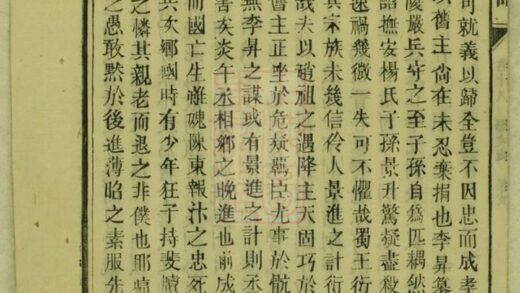 可就義以歸全豈不因忠而成孝
以舊主尚在未忍棄捐也李昇篡
慶嚴兵守之至子孫自爲匹耦然
詔撫安楊氏子孫景升驚疑盡殺
其宗族未幾信伶人景進之計衍
速禍幾微一失可不懼哉蜀王衍
哉夫以碩祖之遇降主天固巧於
舊主正坐於危疑羈臣尤事於骯
無李昇之謀或有景進之計則丞
害矣炎午丞相鄉之晚進也前成
而國亡生離魂陳東報汴之忠死
兵次鄉國時有少年狂子持斐牘
之憐其親老而退之非僕也耶痛
之愚敢默於後進薄昭之素服先